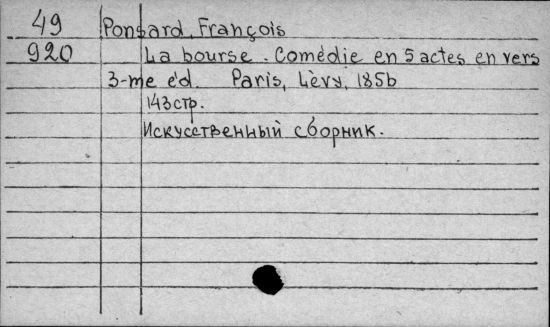 49 Ponsard, François
920 La bourse. Comédie en 5 actes, en vers
3-me éd. Paris, Lèvy, 1856
143 стр.
Искусственный сборник.